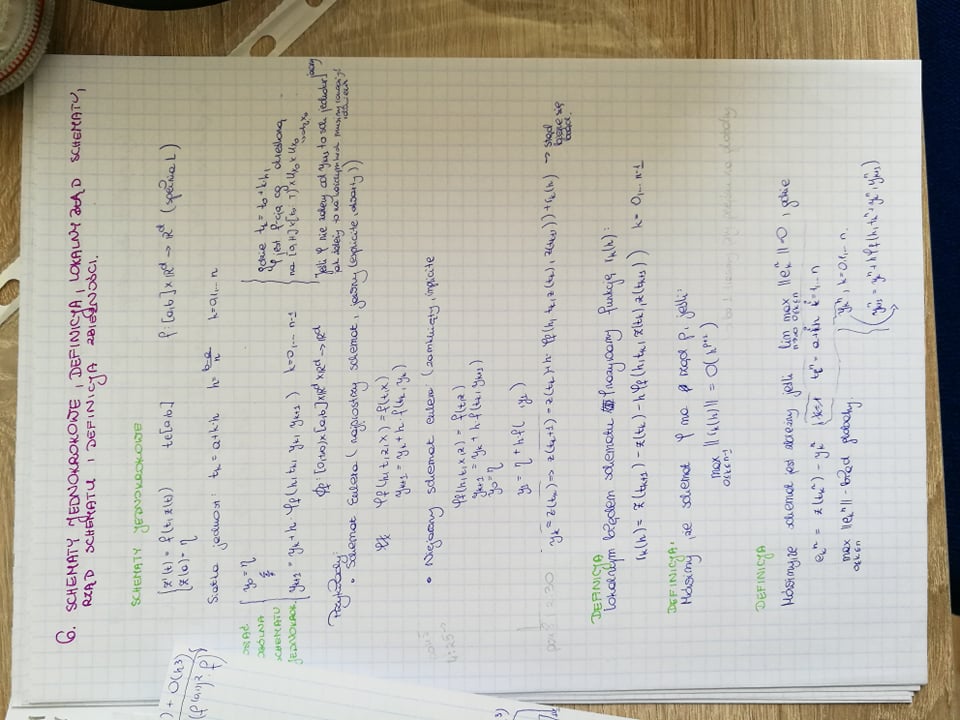 6. SCHEMATY JEDNOKROKOWE, DEFINICJA, LOKALNY BŁĄD SCHEMATU,
RZĄD SCHEMATU I DEFINICJA ZBIEŻNOŚCI.
SCHEMATY JEDNOKROKOWE
{ z'(t) = f(t, z(t)) t∈[a,b] f: [a,b]×ℝᵈ → ℝᵈ (spełnia L)
z(a) = η
Siatka jednost: t_k = a+k·h h = (b-a)/n k=0,1,... n
OGÓLNA
SCHEMATU
JEDNOKROK.
y₀ = η
y_{k+1} = y_k + h·φ_f(h, t_k, y_k, y_{k+1}) k=0,... n-1
φ_f: [0,+∞)×[a,b]×ℝᵈ×ℝᵈ → ℝᵈ
gdzie t_k = t₀ + k·h,
φ jest f-cją określoną
Jeśli φ nie zależy od y_{k+1} to sch. jednokr. jawny
Przykłady:
• Schemat Eulera (najprostszy schemat, jawny (explicite, otwarty))
φ_f(h,t,z,x) = f(t,x)
y_{k+1} = y_k + h·f(t_k, y_k)
• Niejawny schemat eulera (zamknięty, implicite
φ_f(h,t,x,z) = f(t,z)
y_{k+1} = y_k + h·f(t_k, y_{k+1})
y₀ = η
y₁ = η + h f( , y₁)
y_k = z(t_k) => z(t_{k+1}) = z(t_k) + h·φ_f(h, t_k, z(t_k), z(t_{k+1})) + r_k(h) → stąd
bierze się
DEFINICJA
Lokalnym błędem schematu φ nazywamy funkcję r_k(h):
r_k(h) = z(t_{k+1}) - z(t_k) - hφ_f(h, t_k, z(t_k), z(t_{k+1})) k = 0,... n-1
DEFINICJA:
Mówimy, że schemat φ ma rząd p, jeśli:
max_{0≤k≤n-1} ||r_k(h)|| = O(h^{p+1})
DEFINICJA
Mówimy, że schemat jest zbieżny jeśli lim_{n→∞} max_{0≤k≤n} ||e_kⁿ|| = 0, gdzie
e_kⁿ = z(t_kⁿ) - y_kⁿ t_kⁿ = a+kh k=1,... n
max_{0≤k≤n} ||e_kⁿ|| - błąd globalny.
y_kⁿ, k=0,1,... n.
y_{k+1}ⁿ = y_kⁿ + hφ_f(h, t_kⁿ, y_kⁿ, y_{k+1}ⁿ)